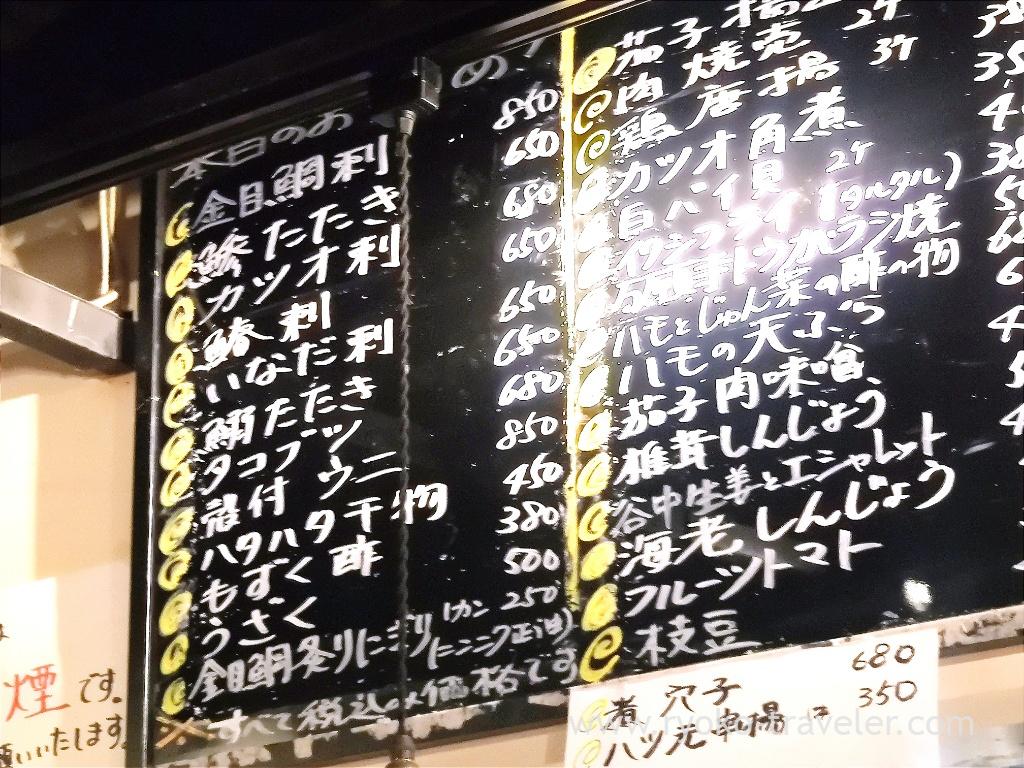 本日のおすすめ
金目鯛刺 850
鯵たたき 650
カツオ刺 680
鰆刺 650
いなだ刺 650
鯛たたき 650
タコブツ 680
殻付ウニ 850
ハタハタ干物 450
もずく酢 380
うざく 500
金目鯛炙りにぎり 1カン250 (ニンニク正油)
※すべて税込の価格です
茄子揚
肉焼売 2ケ
鶏唐揚 3ケ
カツオ角煮
白バイ貝
イワシフライ 2ケ (タルタル)
トウガラシ焼
ハモとじゅん菜の酢の物
ハモの天ぷら
茄子肉味噌
椎茸しんじょう
谷中生姜とエシャレット
海老しんじょう
フルーツトマト
枝豆
煮穴子 680
ハツ元串揚 350
煙です。
いいたします。
www.ryoko-traveler.com